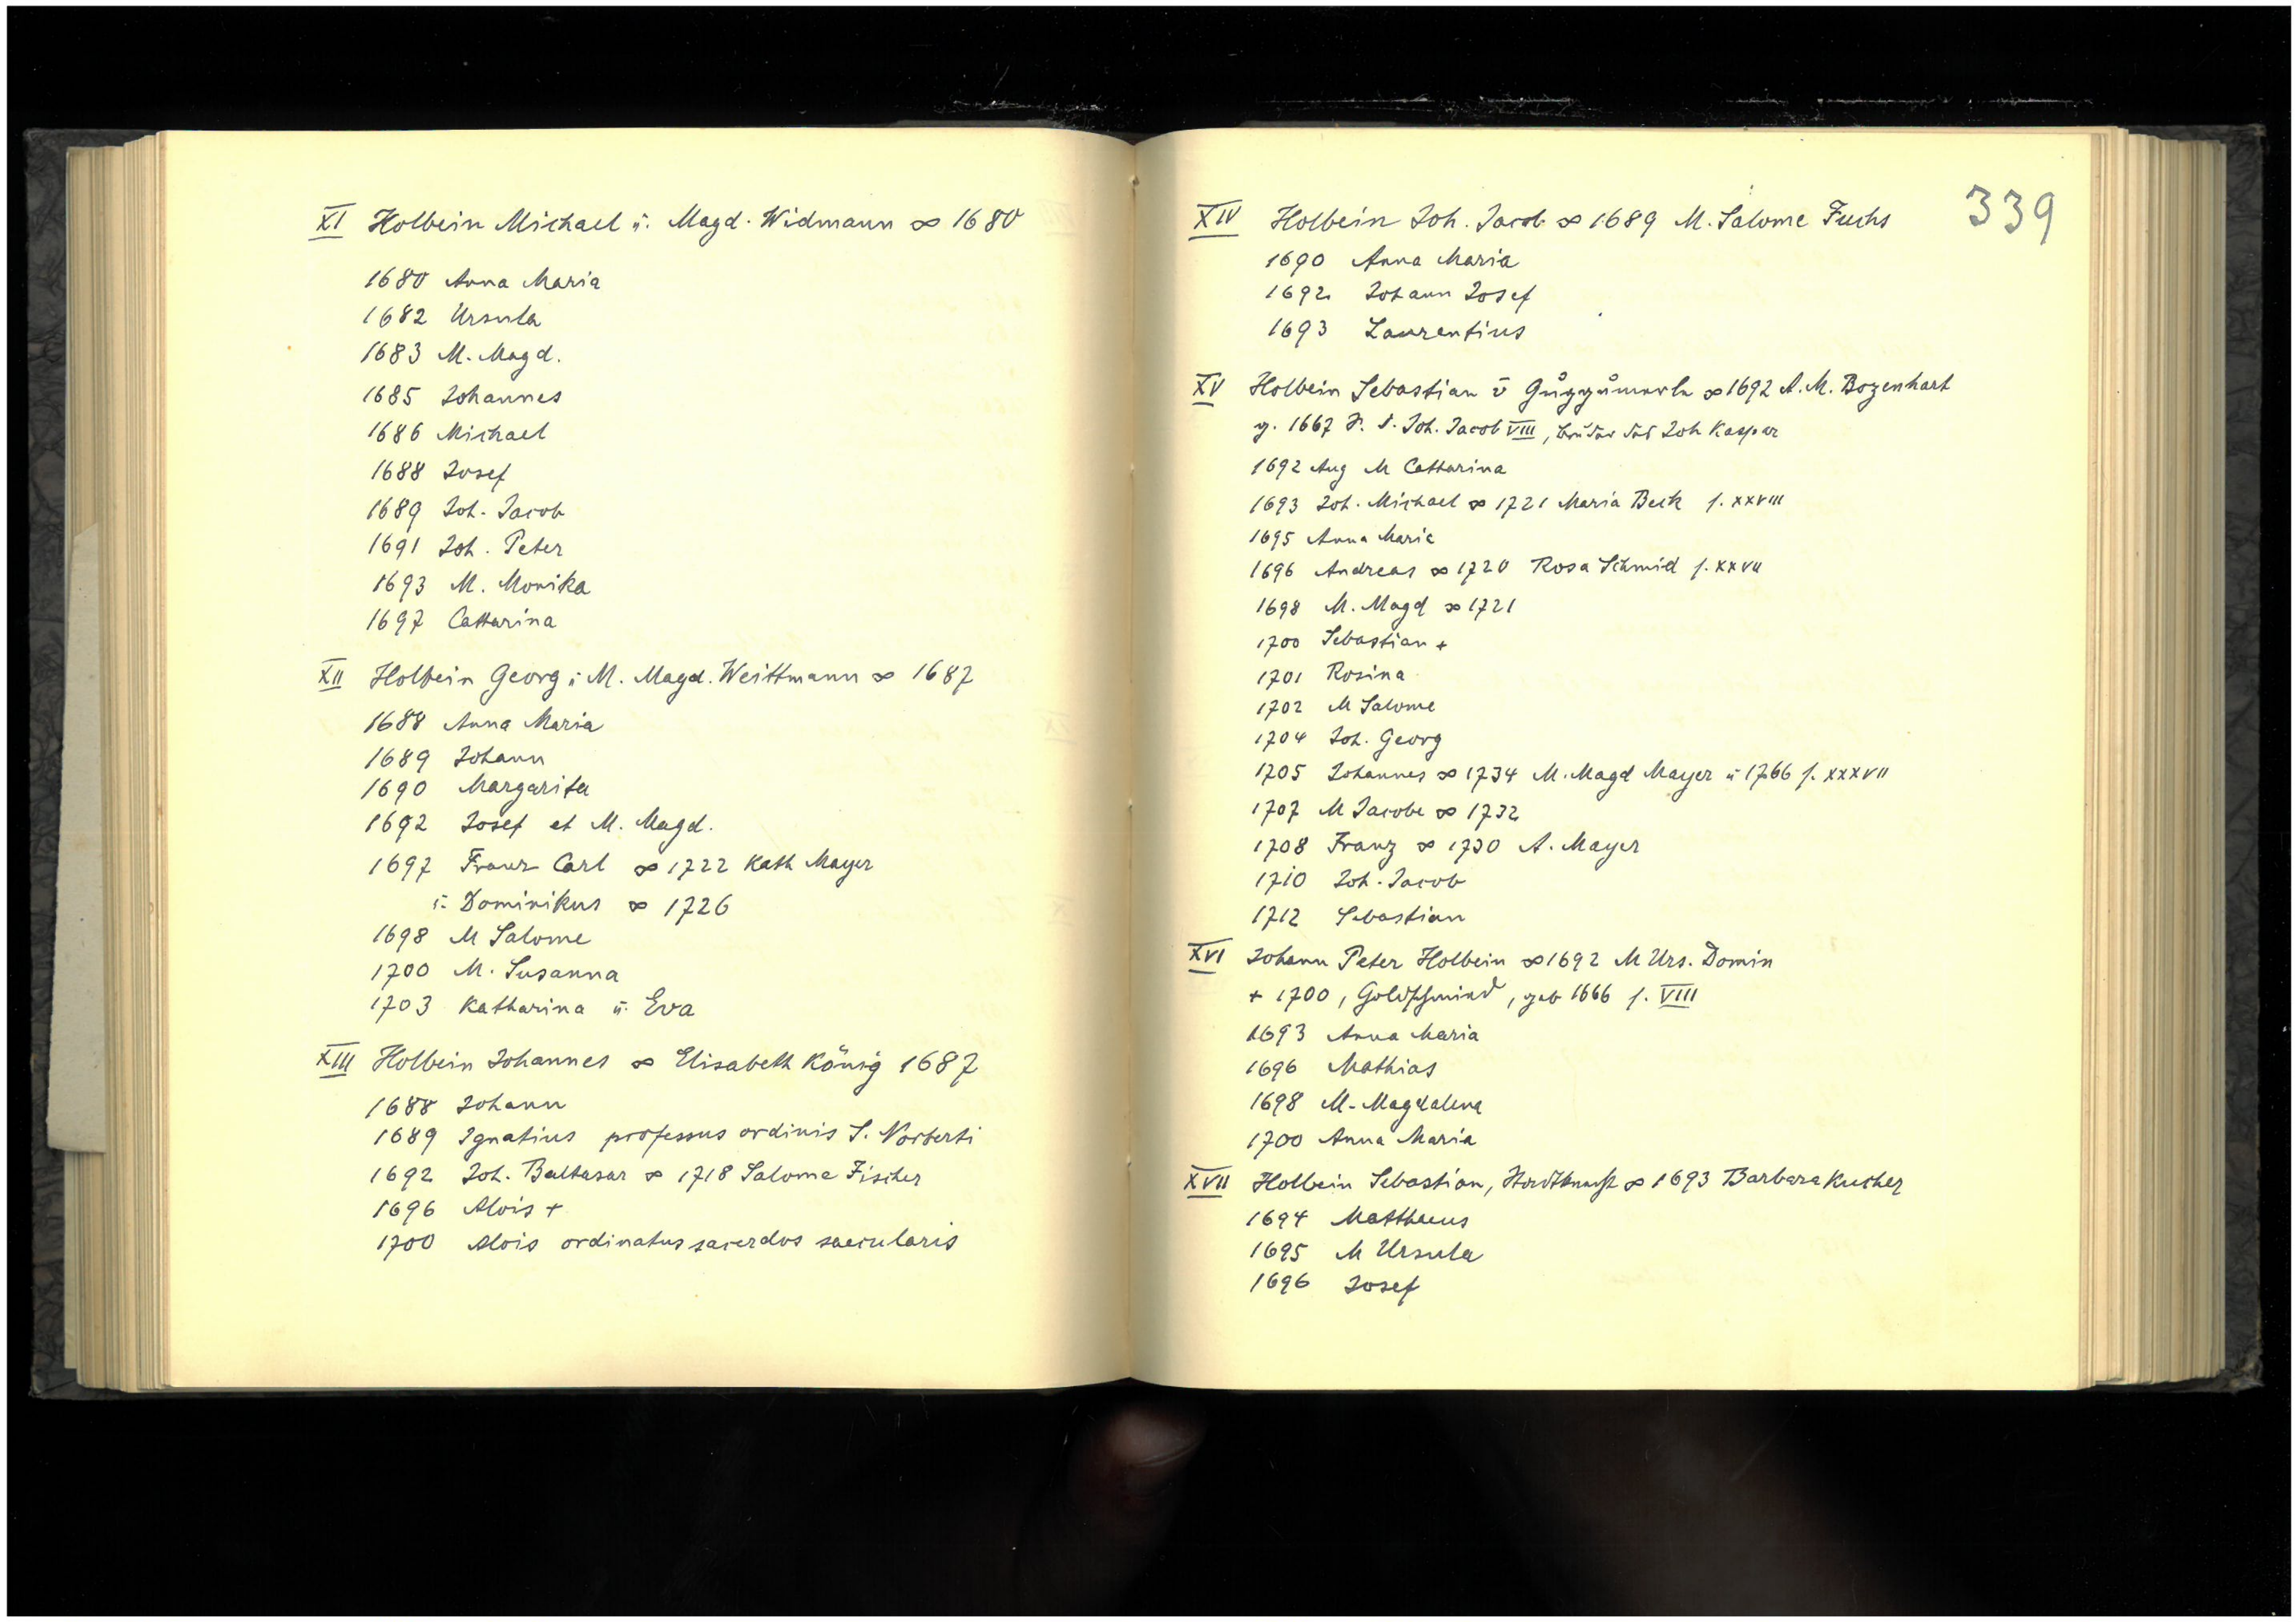 XI Holbein Michael u. Magd. Widmann ∞ 1680
1680 Anna Maria
1682 Ursula
1683 M. Magd.
1685 Johannes
1686 Michael
1688 Josef
1689 Joh. Jacob
1691 Joh. Peter
1693 M. Monika
1697 Catharina
XII Holbein Georg u M. Magd. Weittmann ∞ 1687
1688 Anna Maria
1689 Johann
1690 Margarita
1692 Josef et M. Magd.
1697 Franz Carl ∞ 1722 Kath Mayer
u. Dominikus ∞ 1726
1698 M Salome
1700 M. Susanna
1703 Katharina u. Eva
XIII Holbein Johannes ∞ Elisabeth König 1687
1688 Johann
1689 Ignatius professus ordinis S. Norberti
1692 Joh. Baltasar ∞ 1718 Salome Fischer
1696 Alois +
1700 Alois ordinatus sacerdos saecularis
339
XIV Holbein Joh. Jacob ∞ 1689 M. Salome Fuchs
1690 Anna Maria
1692 Johann Josef
1693 Laurentius
XV Holbein Sebastian ∞ 1692 A. M. Bozenhart
g. 1667 S. d. Joh. Jacob VIII, Bruder des Joh Kaspar
1692 Aug M Catharina
1693 Joh. Michael ∞ 1721 Maria Beck s. XXVIII
1695 Anna Maria
1696 Andreas ∞ 1720 Rosa Schmid s. XXVII
1698 M. Magd ∞ 1721
1700 Sebastian +
1701 Rosina
1702 M Salome
1704 Joh. Georg
1705 Johannes ∞ 1734 M. Magd Mayer u 1766 s. XXXVII
1707 M Jacobe ∞ 1732
1708 Franz ∞ 1730 A. Mayer
1710 Joh. Jacob
1712 Sebastian
XVI Johann Peter Holbein ∞ 1692 M Urs. Domin
+ 1700, Goldschmied, geb 1666 s. VIII
1693 Anna Maria
1696 Mathias
1698 M. Magdalena
1700 Anna Maria
XVII Holbein Sebastian, ∞ 1693 Barbara Kucher
1694 Matthaeus
1695 M Ursula
1696 Josef